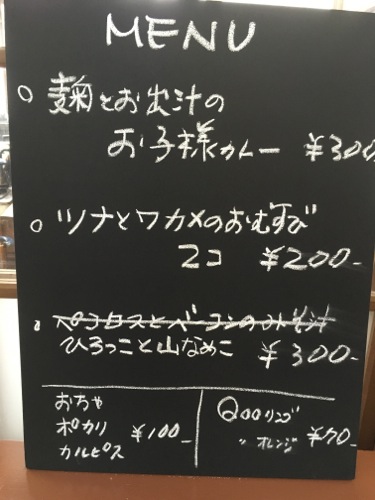 MENU
麹とお出汁の
お子様カレー ¥300
ツナとワカメのおむすび
2コ ¥200-
ペコロスとベーコンのみそ汁
ひろっこと山なめこ ¥300-
おちゃ
ポカリ ¥100-
カルピス
Qooリンゴ
〃 オレンジ ¥70-